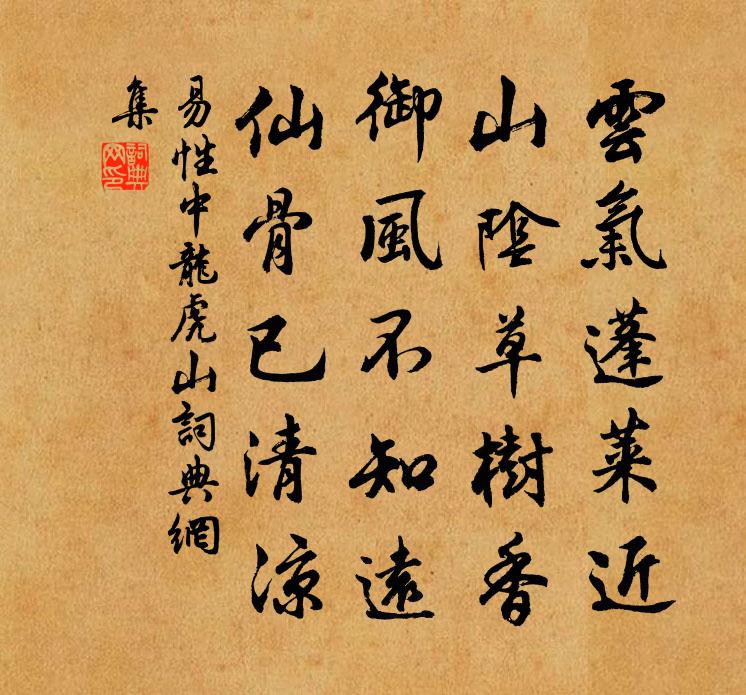 雲氣蓬萊近
山陰草樹香
御風不知遠
仙骨已清涼
易性中龍虎山詞典網
集
詞典網印